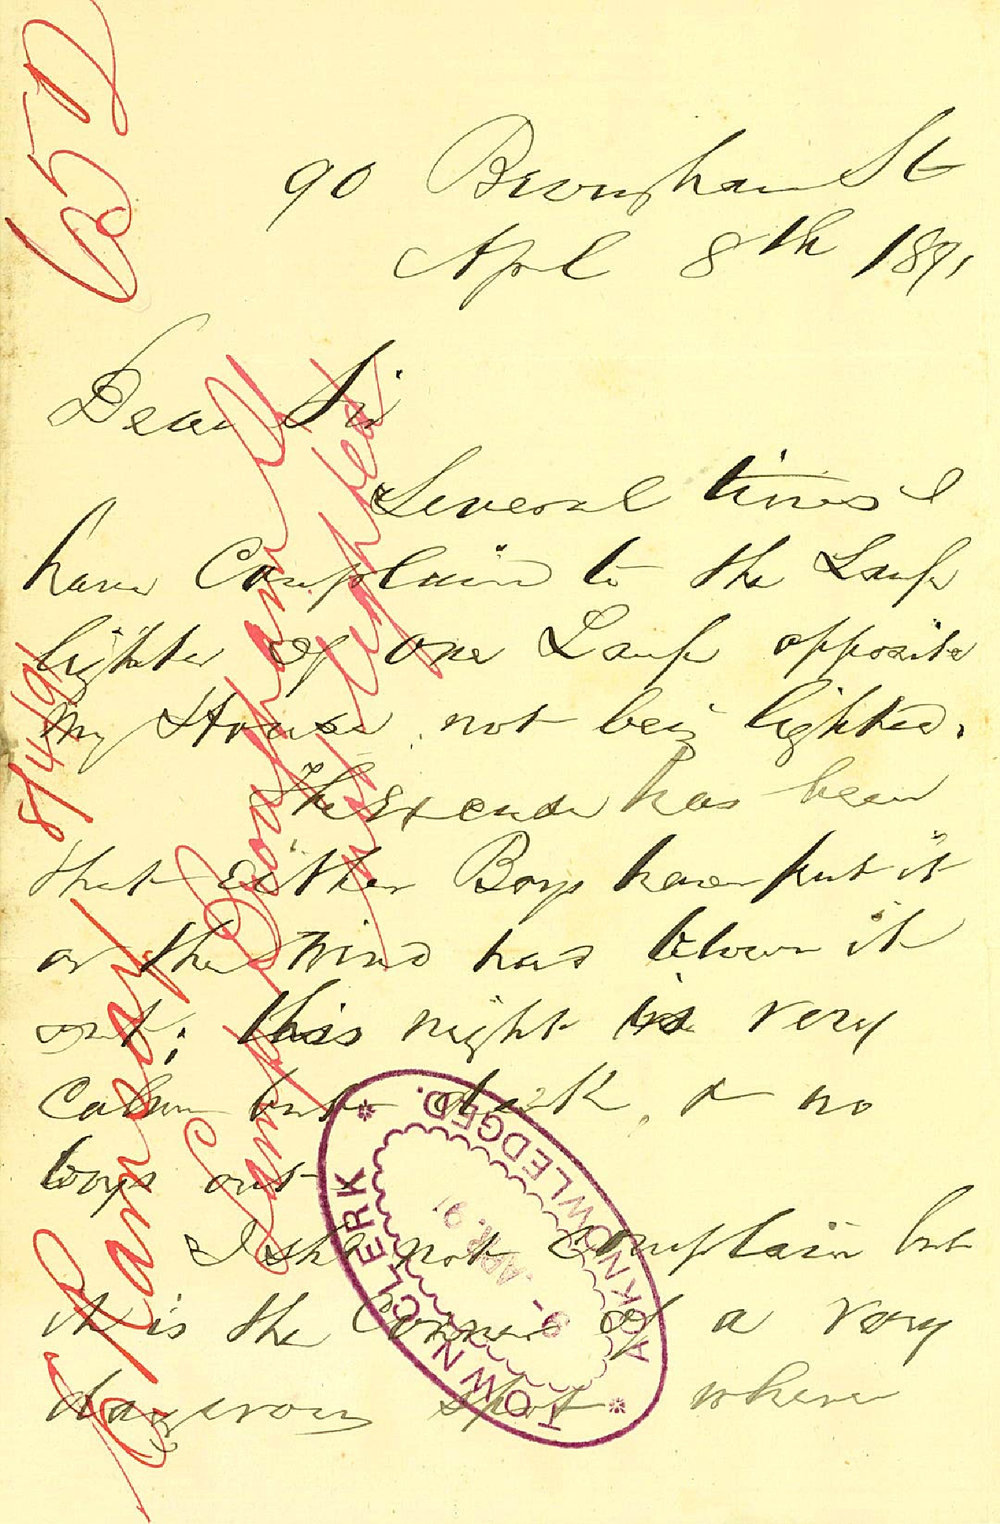 90 Brougham St
Apl 8th 1891
Dear Sir
Several times I
have Complain to the Lamp
lighter of one Lamp opposite
my House not being lighted.
The Excuse has been
that Either Boys have put it
or the Wind has blown it
out; this night is very
Calm but dark, & no
boys out
I sho not Complain but
it is the Corner of a very
dangerous spot where
652
8/4/91
Lamp Brougham St
not lighted
TOWN CLERK
ACKNOWLEDGED.
9-APR.91